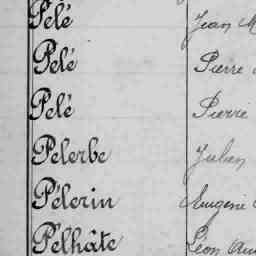 Pelé Jean M
Pelé Pierre
Pelé Pierre
Pelerbe Julien
Pélerin Eugène
Pelhâte Léon Au